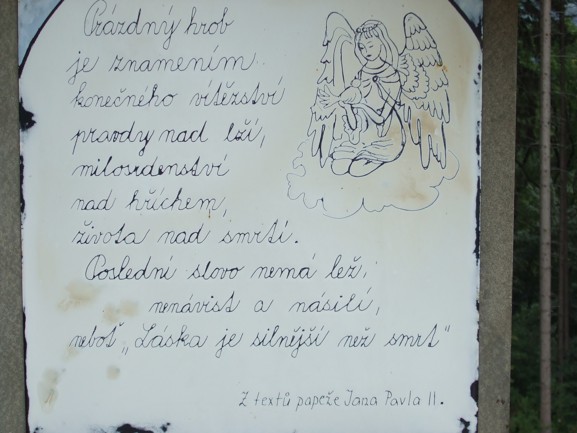 Prázdný hrob
je znamením
konečného vítězství
pravdy nad lží,
milosrdenství
nad hříchem,
života nad smrtí.
Poslední slovo nemá lež,
nenávist a násilí,
neboť „Láska je silnější než smrt"
Z textů papeže Jana Pavla II.